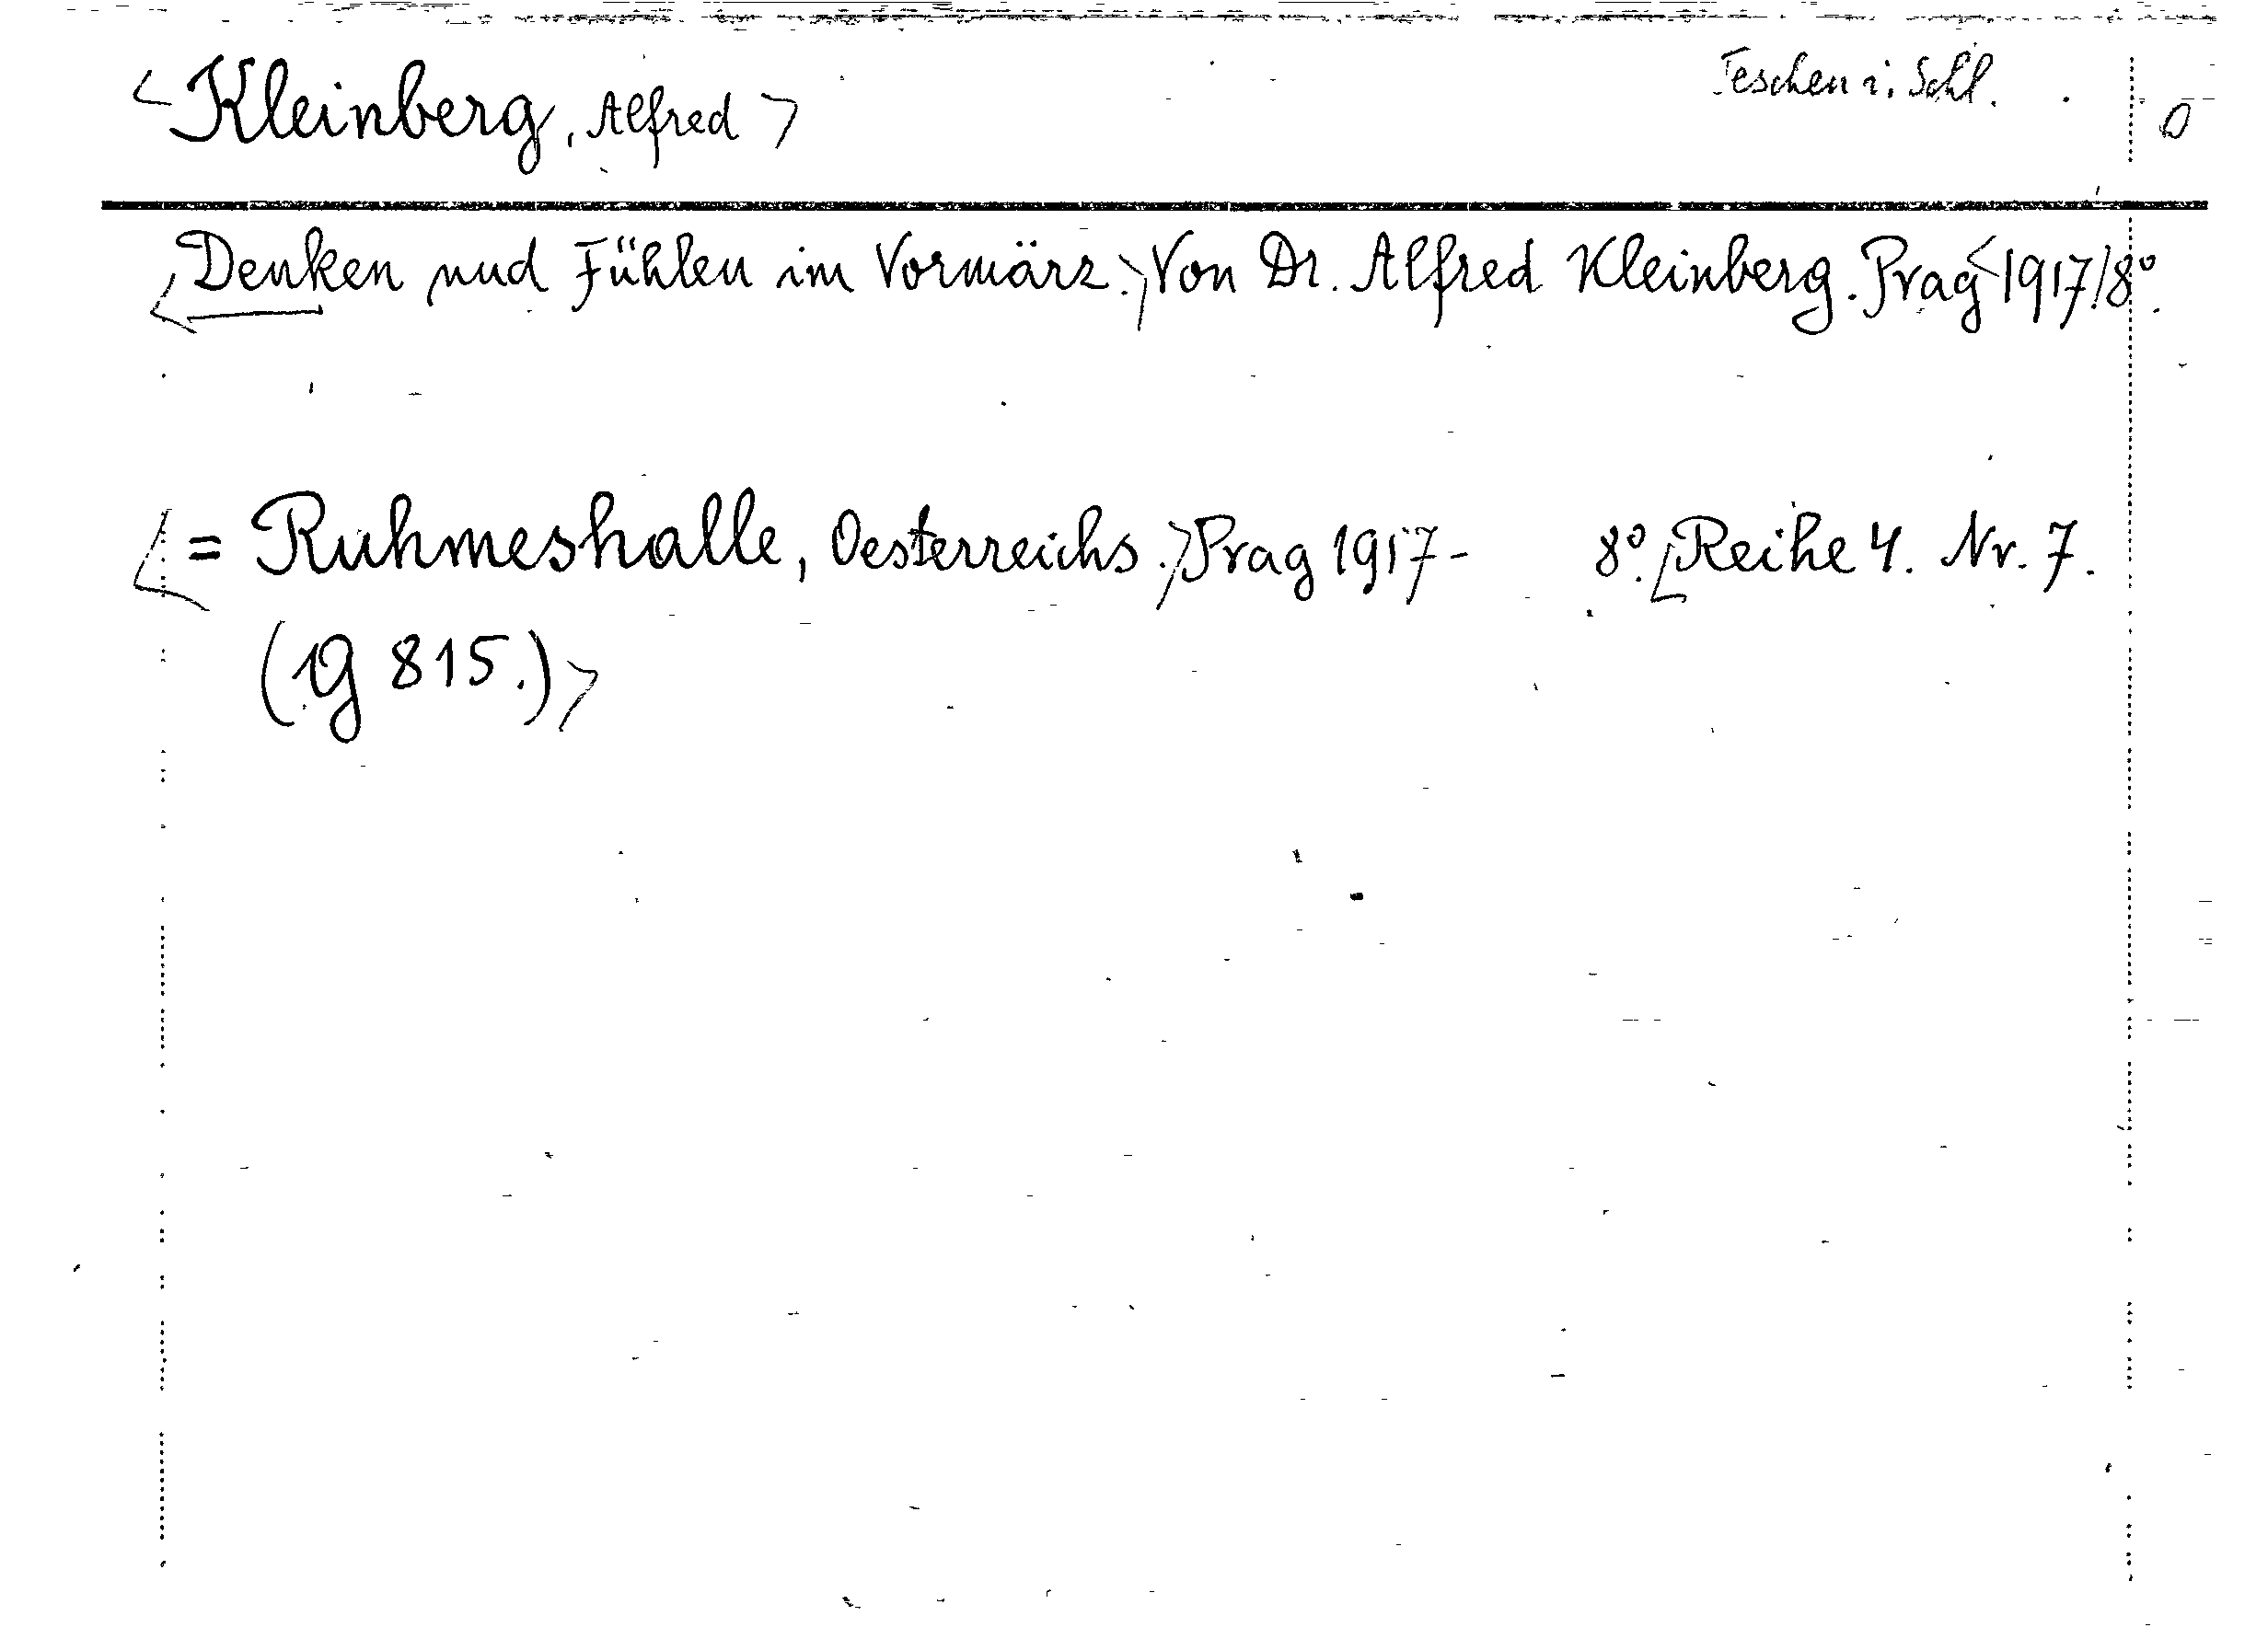 <Kleinberg, Alfred> Teschen i. Schl. 0
<Denken und Fühlen im Vormärz.> Von Dr. Alfred Kleinberg. Prag <1917/8°.
<= Ruhmeshalle, Oesterreichs.> Prag 1917- 8°. <Reihe 4. Nr. 7.
(1g 815.)>